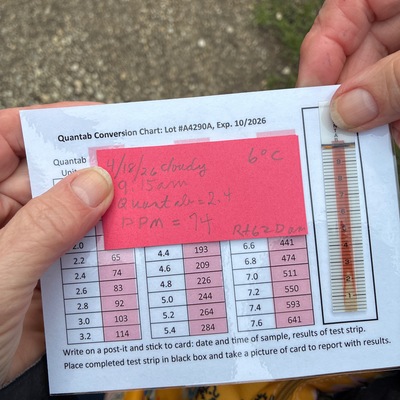 Quantab Conversion Chart: Lot #A4290A, Exp. 10/2026
Quantab
4/18/26 cloudy 6°C
9:15am
Quantab = 2.4
PPM = 74
2.0 193 6.6 441
2.2 65 4.4 193 6.6 441
2.4 74 4.6 209 6.8 474
2.6 83 4.8 226 7.0 511
2.8 92 5.0 244 7.2 550
3.0 103 5.2 264 7.4 593
3.2 114 5.4 284 7.6 641
Write on a post-it and stick to card: date and time of sample, results of test strip.
Place completed test strip in black box and take a picture of card to report with results.